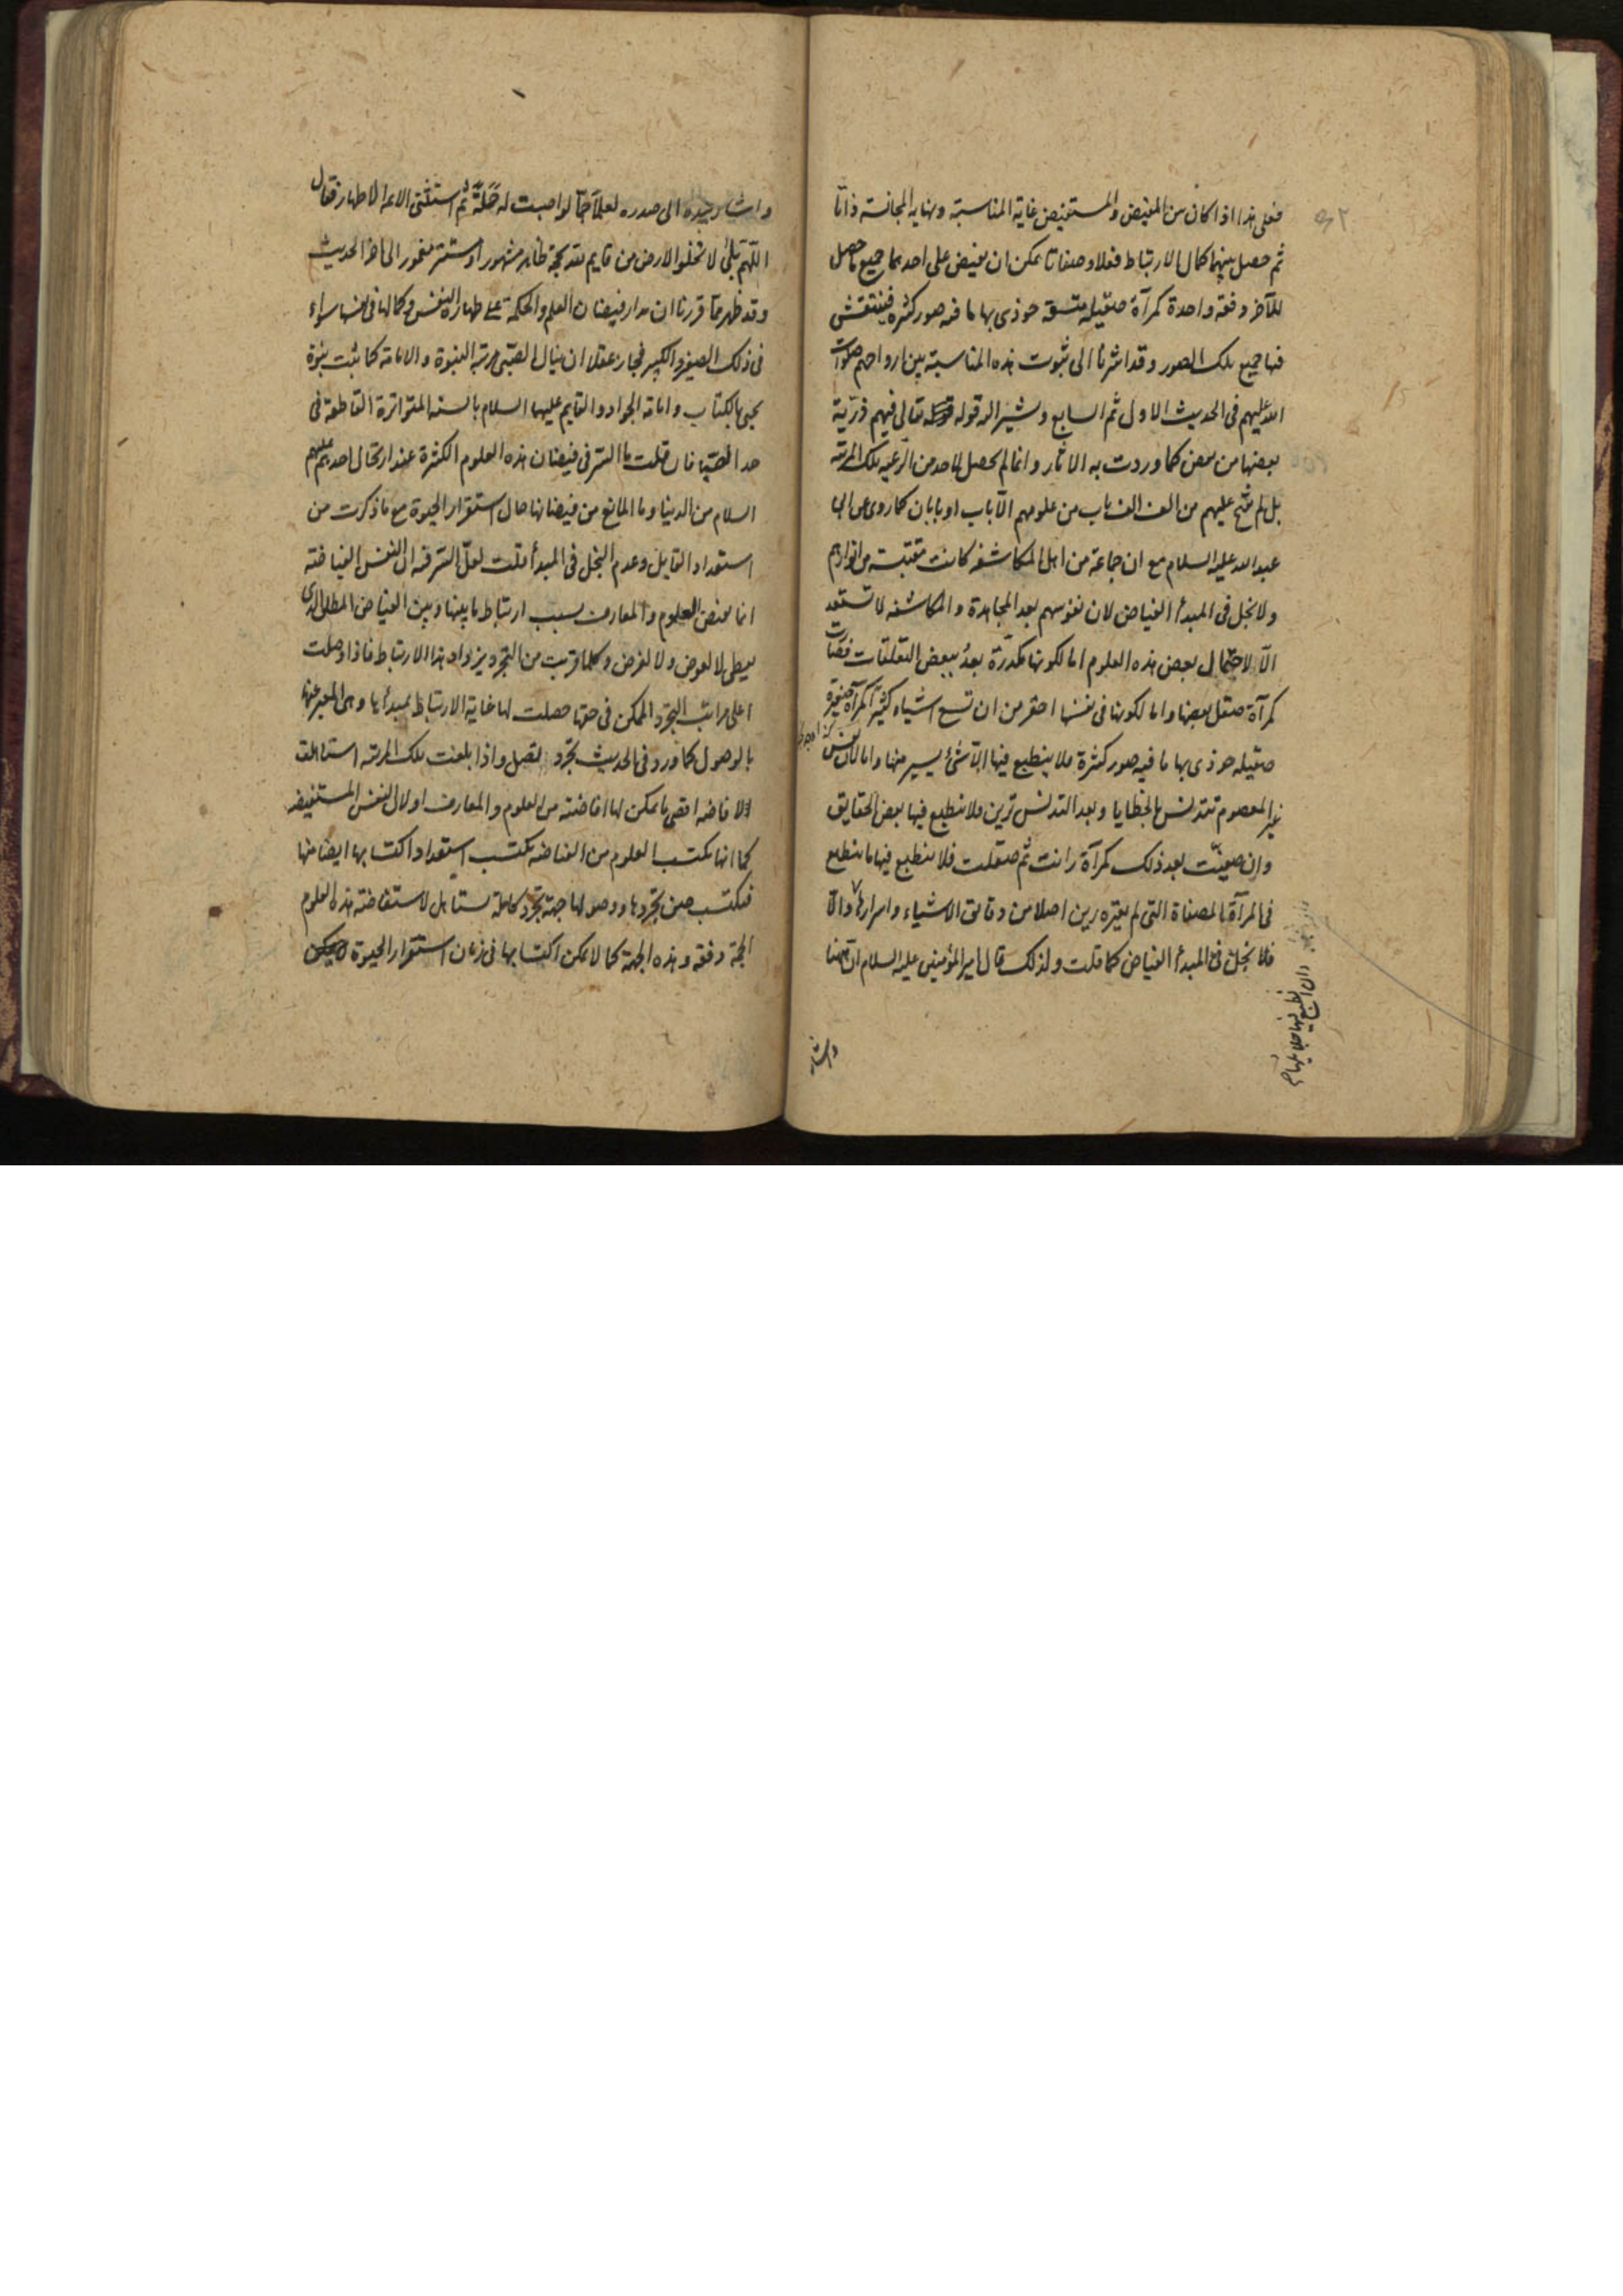 فعلى هذا اذا كان بين المفيض والمستفيض غاية المناسبة ونهاية المجانسة ذاتا
ثم حصل بينهما كمال الارتباط فعلا وصفاتا يمكن ان يفيض على احدهما جميع ما حصل
للآخر دفعة واحدة كمرآة صقيلة متسقة حوذى بها ما فيه صور كثيرة فينتقش
فيها جميع تلك الصور وقد اشرنا الى ثبوت هذه المناسبة بين ارواحهم صلوات
الله عليهم فى الحديث الاول ثم السابع ويشير اليه قوله تعالى فيهم ذرّية
بعضها من بعض كما وردت به الاثار وانما لم يحصل لاحد من الرعية تلك المرتبة
بل لم يفتح عليهم من الف الف باب من علومهم الّا باب او بابان كما روى عن ابى
عبد الله عليه السلام مع ان جماعة من اهل المكاشفة كانت مقتبسة من انوارهم
ولا بخل فى المبدأ الفياض لان نفوسهم بعد المجاهدة والمكاشفة لا تستعد
الّا لاحتمال بعض هذه العلوم اما لكونها مكدّرة بعدُ ببعض التعلقات فصارت
كمرآة صقل بعضها واما لكونها فى نفسها احقر من ان تسع اشياء كثيرة كمرآة صغيرة
صقيلة حوذى بها ما فيه صور كثيرة فلا ينطبع فيها الّا شئ يسير منها واما لان نفس
غير المعصوم تتدنس بالخطايا وبعد التدنس ترين فلا ينطبع فيها بعض الحقايق
وان صفيت بعد ذلك كمرآة رانت ثم صقلت فلا ينطبع فيها ما ينطبع
فى المرآة المصفاة التى لم يعتره رين اصلا من دقايق الاشياء واسرارها والّا
فلا بخل فى المبدأ الفياض كما قلت ولذلك قال امير المؤمنين عليه السلام ان ههنا
وان انطبع فيها
واشار
واشار بيده الى صدره لعلماً جمّاً لو اصبت له حَمَلَةً ثم استثنى الائمة الاطهار فقال
اللّهم بلى لا تخلو الارض من قايم لله بحجة ظاهر مشهور او مستتر مغمور الى اخر الحديث
وقد ظهر مما قررنا ان مدار فيضان العلم والحكمة على طهارة النفس وكمالها فى نفسها سواء
فى ذلك الصغير والكبير فجاز عقلا ان ينال الصبّى مرتبة النبوة والامامة كما ثبت نبوة
يحيى بالكتاب وامامة الجواد والقايم عليهما السلام بالسنة المتواترة القاطعة فى
حد الصبا فان قلت ما السر فى فيضان هذه العلوم الكثيرة عند ارتحال احدهم عليهم
السلام من الدنيا وما المانع من فيضانها حال استقرار الحيوة مع ما ذكرت من
استعداد القابل وعدم البخل فى المبدأ قلت لعلّ السّر فيه ان النفس الفياضة
انما تفيض العلوم والمعارف بسبب ارتباط ما بينها وبين الفياض المطلق الذى
يعطى لا لعوض ولا لغرض وكلما قربت من التجرد يزداد هذا الارتباط فاذا وصلت
اعلى مراتب التجرد الممكن فى حقها حصلت لها غاية الارتباط بمبدأها وهى المعبر عنها
بالوصول كما ورد فى الحديث تجرّد تصل واذا بلغت تلك المرتبة استاهلت
لافاضة اقصى ما يمكن لها افاضته من العلوم والمعارف اولا لان النفس المستفيضة
كما انها تكتسب العلوم من الفياضة تكتسب استعداد اكتسابها ايضا منها
فتكتسب حين تجرّدها ووصولها جهة تجرّد كاملة تستاهل لاستفاضة هذه العلوم
الجمّة دفعة وهذه الجهة كما لا يمكن اكتسابها فى زمان استقرار الحيوة